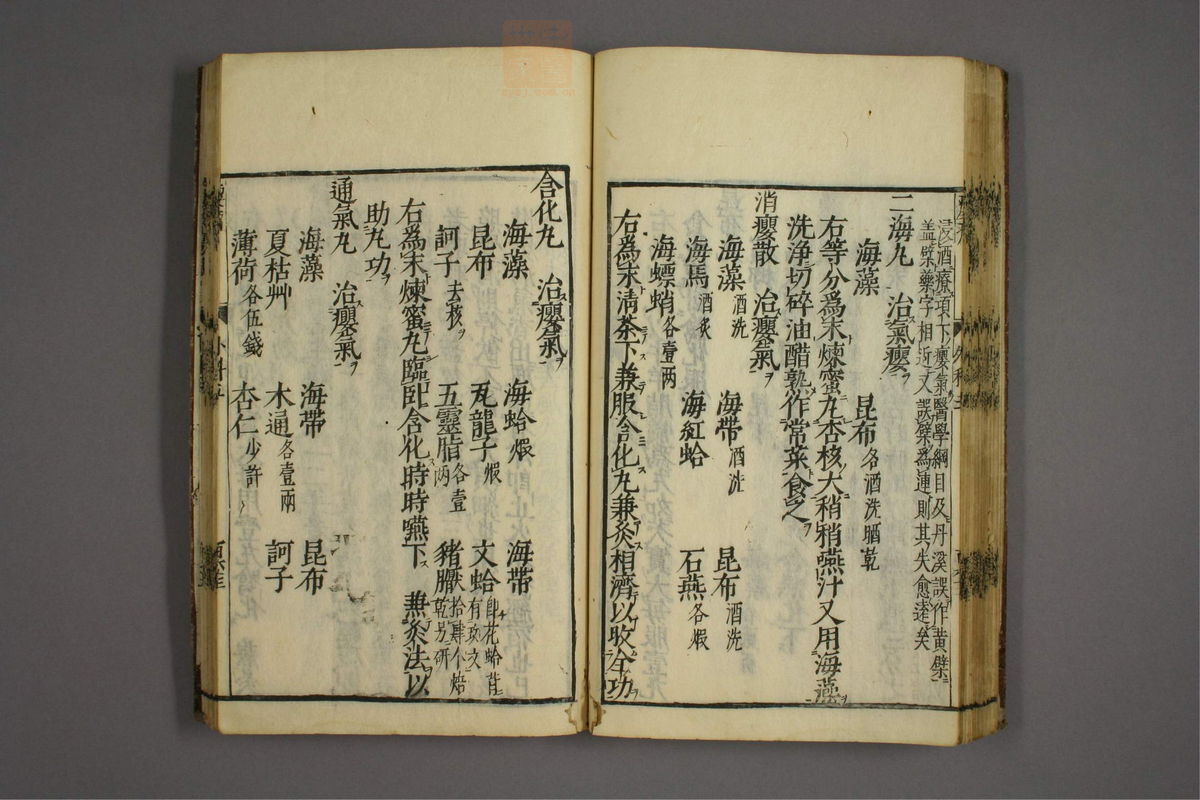 浸酒療項下癭氣醫學綱目及丹溪誤作黃檗
盖檗藥字相近又誤檗爲連則其失愈逺矣
二海丸　治氣癭
海藻　昆布各酒洗晒乾
右等分爲末煉蜜丸杏核大稍稍嚥汁又用海藻
洗淨切碎油醋熟作常菜食之
消癭散　治癭氣
海藻酒洗　海帶酒洗　昆布酒洗
海馬酒炙　海紅蛤　石燕各煅
海螵蛸各壹兩
右爲末清茶下兼服含化丸兼灸相濟以收全功
含化丸　治癭氣
海藻　海蛤煅　海帶
昆布　瓦龍子煅　文蛤即花蛤背有攻文
訶子去核　五靈脂各壹兩　豬靨拾肆个焙乾另研
右爲末煉蜜丸臨卧含化時時嚥下　兼灸法以
助丸功
通氣丸　治癭氣
海藻　海帶　昆布
夏枯艸　木通各壹兩　訶子
薄荷各伍錢　杏仁少許